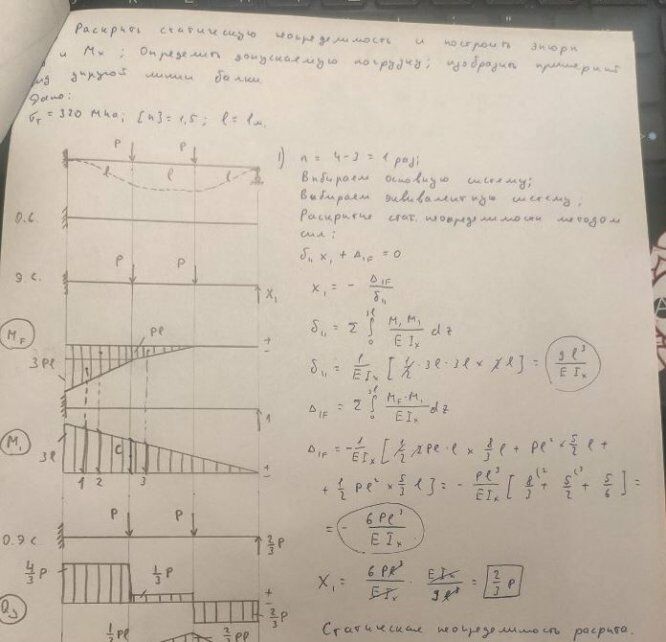 Раскрыть статическую неопределимость и построить эпюры
и Mx ; Определить допускаемую нагрузку; изобразить примерный
вид упругой линии балки
Дано:
σт = 320 МПа; [n] = 1,5; l = 1м.
P P
l l l
О.С.
P P
Э.С.
X₁
MF
Pl
3Pl
+
-
1
M₁
3l
C
1 2 3
+
-
P P
О.Э.С.
2/3 P
4/3 P
1/3 P
+
-
Qy
2/3 P
1/3 Pl
2/3 Pl
1) n = 4-3 = 1 раз;
Выбираем основную систему;
Выбираем эквивалентную систему;
Раскрытие стат. неопределимости методом
сил:
δ₁₁ x₁ + Δ1F = 0
x₁ = - Δ1F/δ₁₁
δ₁₁ = Σ ∫₀³ˡ M₁ M₁/EIx dz
δ₁₁ = 1/EIx [ 1/2 · 3l · 3l × 2l ] = 9l³/EIx
Δ1F = Σ ∫₀³ˡ MF · M₁/EIx dz
Δ1F = - 1/EIx [ 1/2 2Pl · l × 8/3 l + Pl² × 5/2 l +
+ 1/2 Pl² × 5/3 l ] = - Pl³/EIx [ 8/3 + 5/2 + 5/6 ] =
= - 6Pl³/EIx
X₁ = 6Pl³/EIx · EIx/9l³ = 2/3 P
Статическая неопределимость раскрыта.